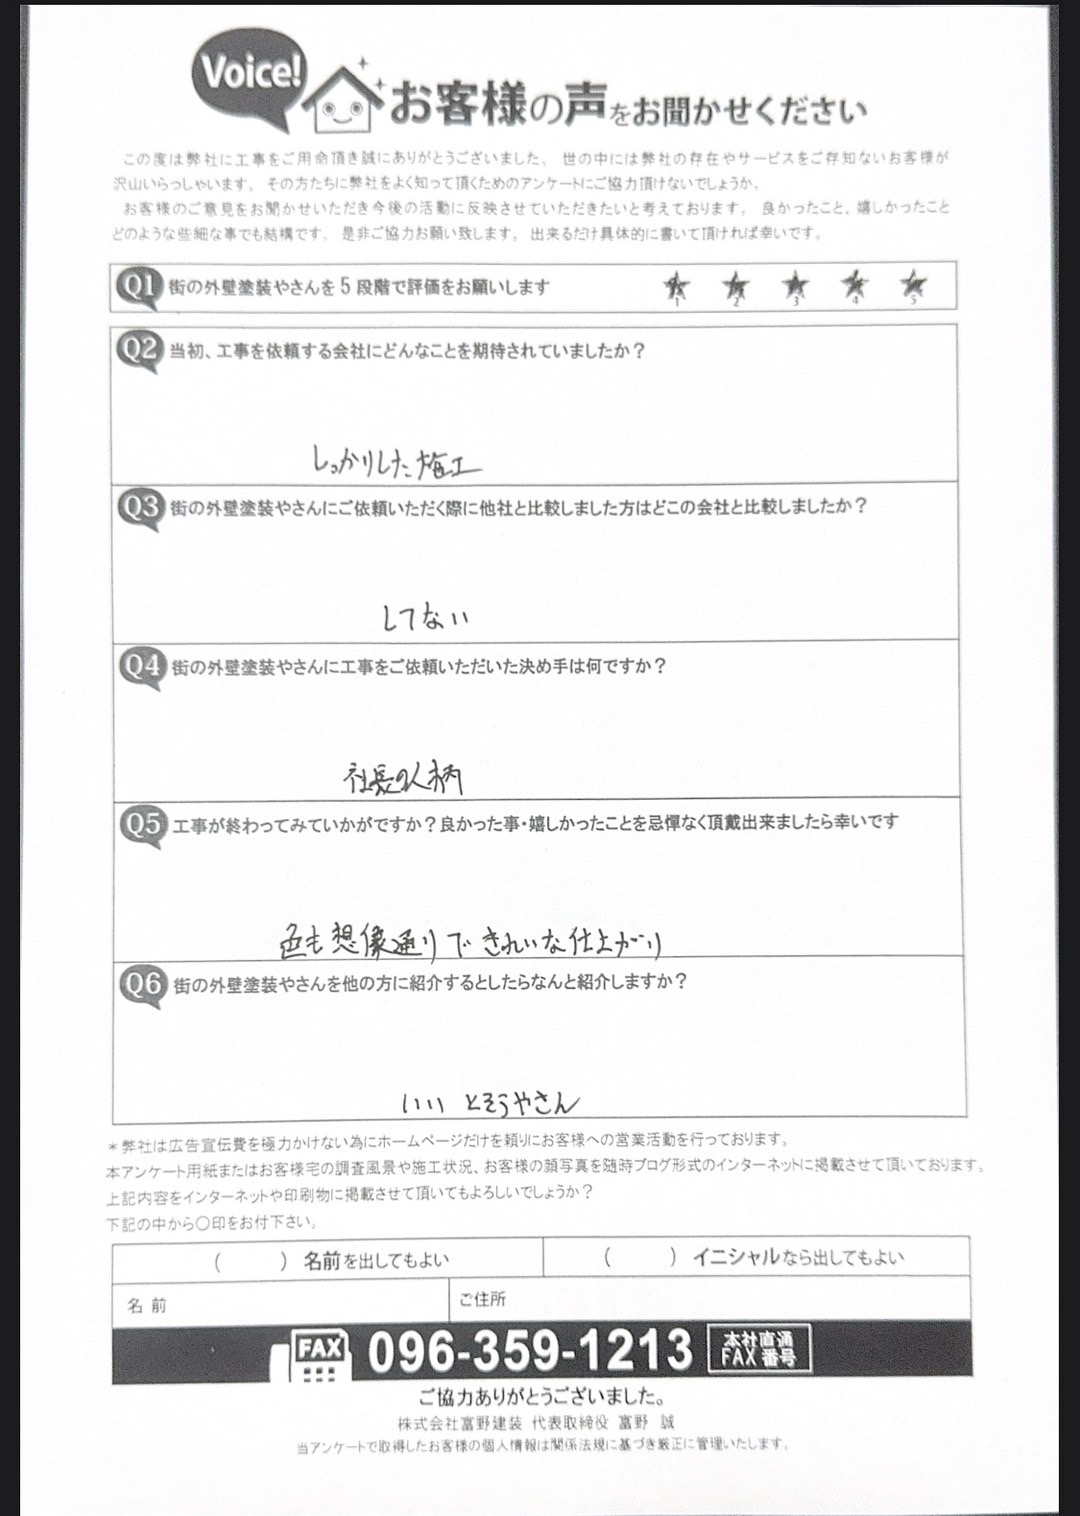 Voice!
お客様の声をお聞かせください
この度は弊社に工事をご用命頂き誠にありがとうございました。 世の中には弊社の存在やサービスをご存知ないお客様が
沢山いらっしゃいます。 その方たちに弊社をよく知って頂くためのアンケートにご協力頂けないでしょうか。
お客様のご意見をお聞かせいただき今後の活動に反映させていただきたいと考えております。 良かったこと、嬉しかったこと
どのような些細な事でも結構です。 是非ご協力お願い致します。 出来るだけ具体的に書いて頂ければ幸いです。
Q1 街の外壁塗装やさんを5段階で評価をお願いします
1 2 3 4 5
Q2 当初、工事を依頼する会社にどんなことを期待されていましたか？
しっかりした施工
Q3 街の外壁塗装やさんにご依頼いただく際に他社と比較しました方はどこの会社と比較しましたか？
してない
Q4 街の外壁塗装やさんに工事をご依頼いただいた決め手は何ですか？
社長の人柄
Q5 工事が終わってみていかがですか？良かった事・嬉しかったことを忌憚なく頂戴出来ましたら幸いです
色も想像通りで きれいな仕上がり
Q6 街の外壁塗装やさんを他の方に紹介するとしたらなんと紹介しますか？
いい とそうやさん
＊弊社は広告宣伝費を極力かけない為にホームページだけを頼りにお客様への営業活動を行っております。
本アンケート用紙またはお客様宅の調査風景や施工状況、お客様の顔写真を随時ブログ形式のインターネットに掲載させて頂いております。
上記内容をインターネットや印刷物に掲載させて頂いてもよろしいでしょうか？
下記の中から〇印をお付下さい。
（　　　）名前を出してもよい （　　　）イニシャルなら出してもよい
名 前 ご住所
FAX 096-359-1213 本社直通
FAX番号
ご協力ありがとうございました。
株式会社富野建装 代表取締役 富野 誠
当アンケートで取得したお客様の個人情報は関係法規に基づき厳正に管理いたします。